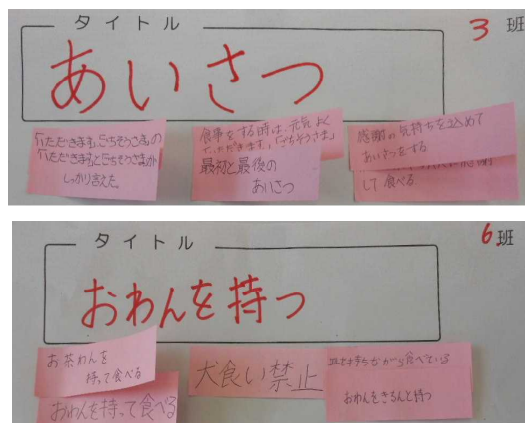 タイトル
3班
あいさつ
「いただきます」「ごちそうさま」の
「いただきます」と「ごちそうさま」が
しっかり言えた。
食事をする時は、元気よく
いただきます、「ごちそうさま」
最初と最後の
あいさつ
感謝の気持ちを込めて
あいさつをする
して食べる
タイトル
6班
おわんを持つ
お茶わんを
持って食べる
おわんを持って食べる
犬食い禁止
皿を持ちながら食べている
おわんをきちんと持つ